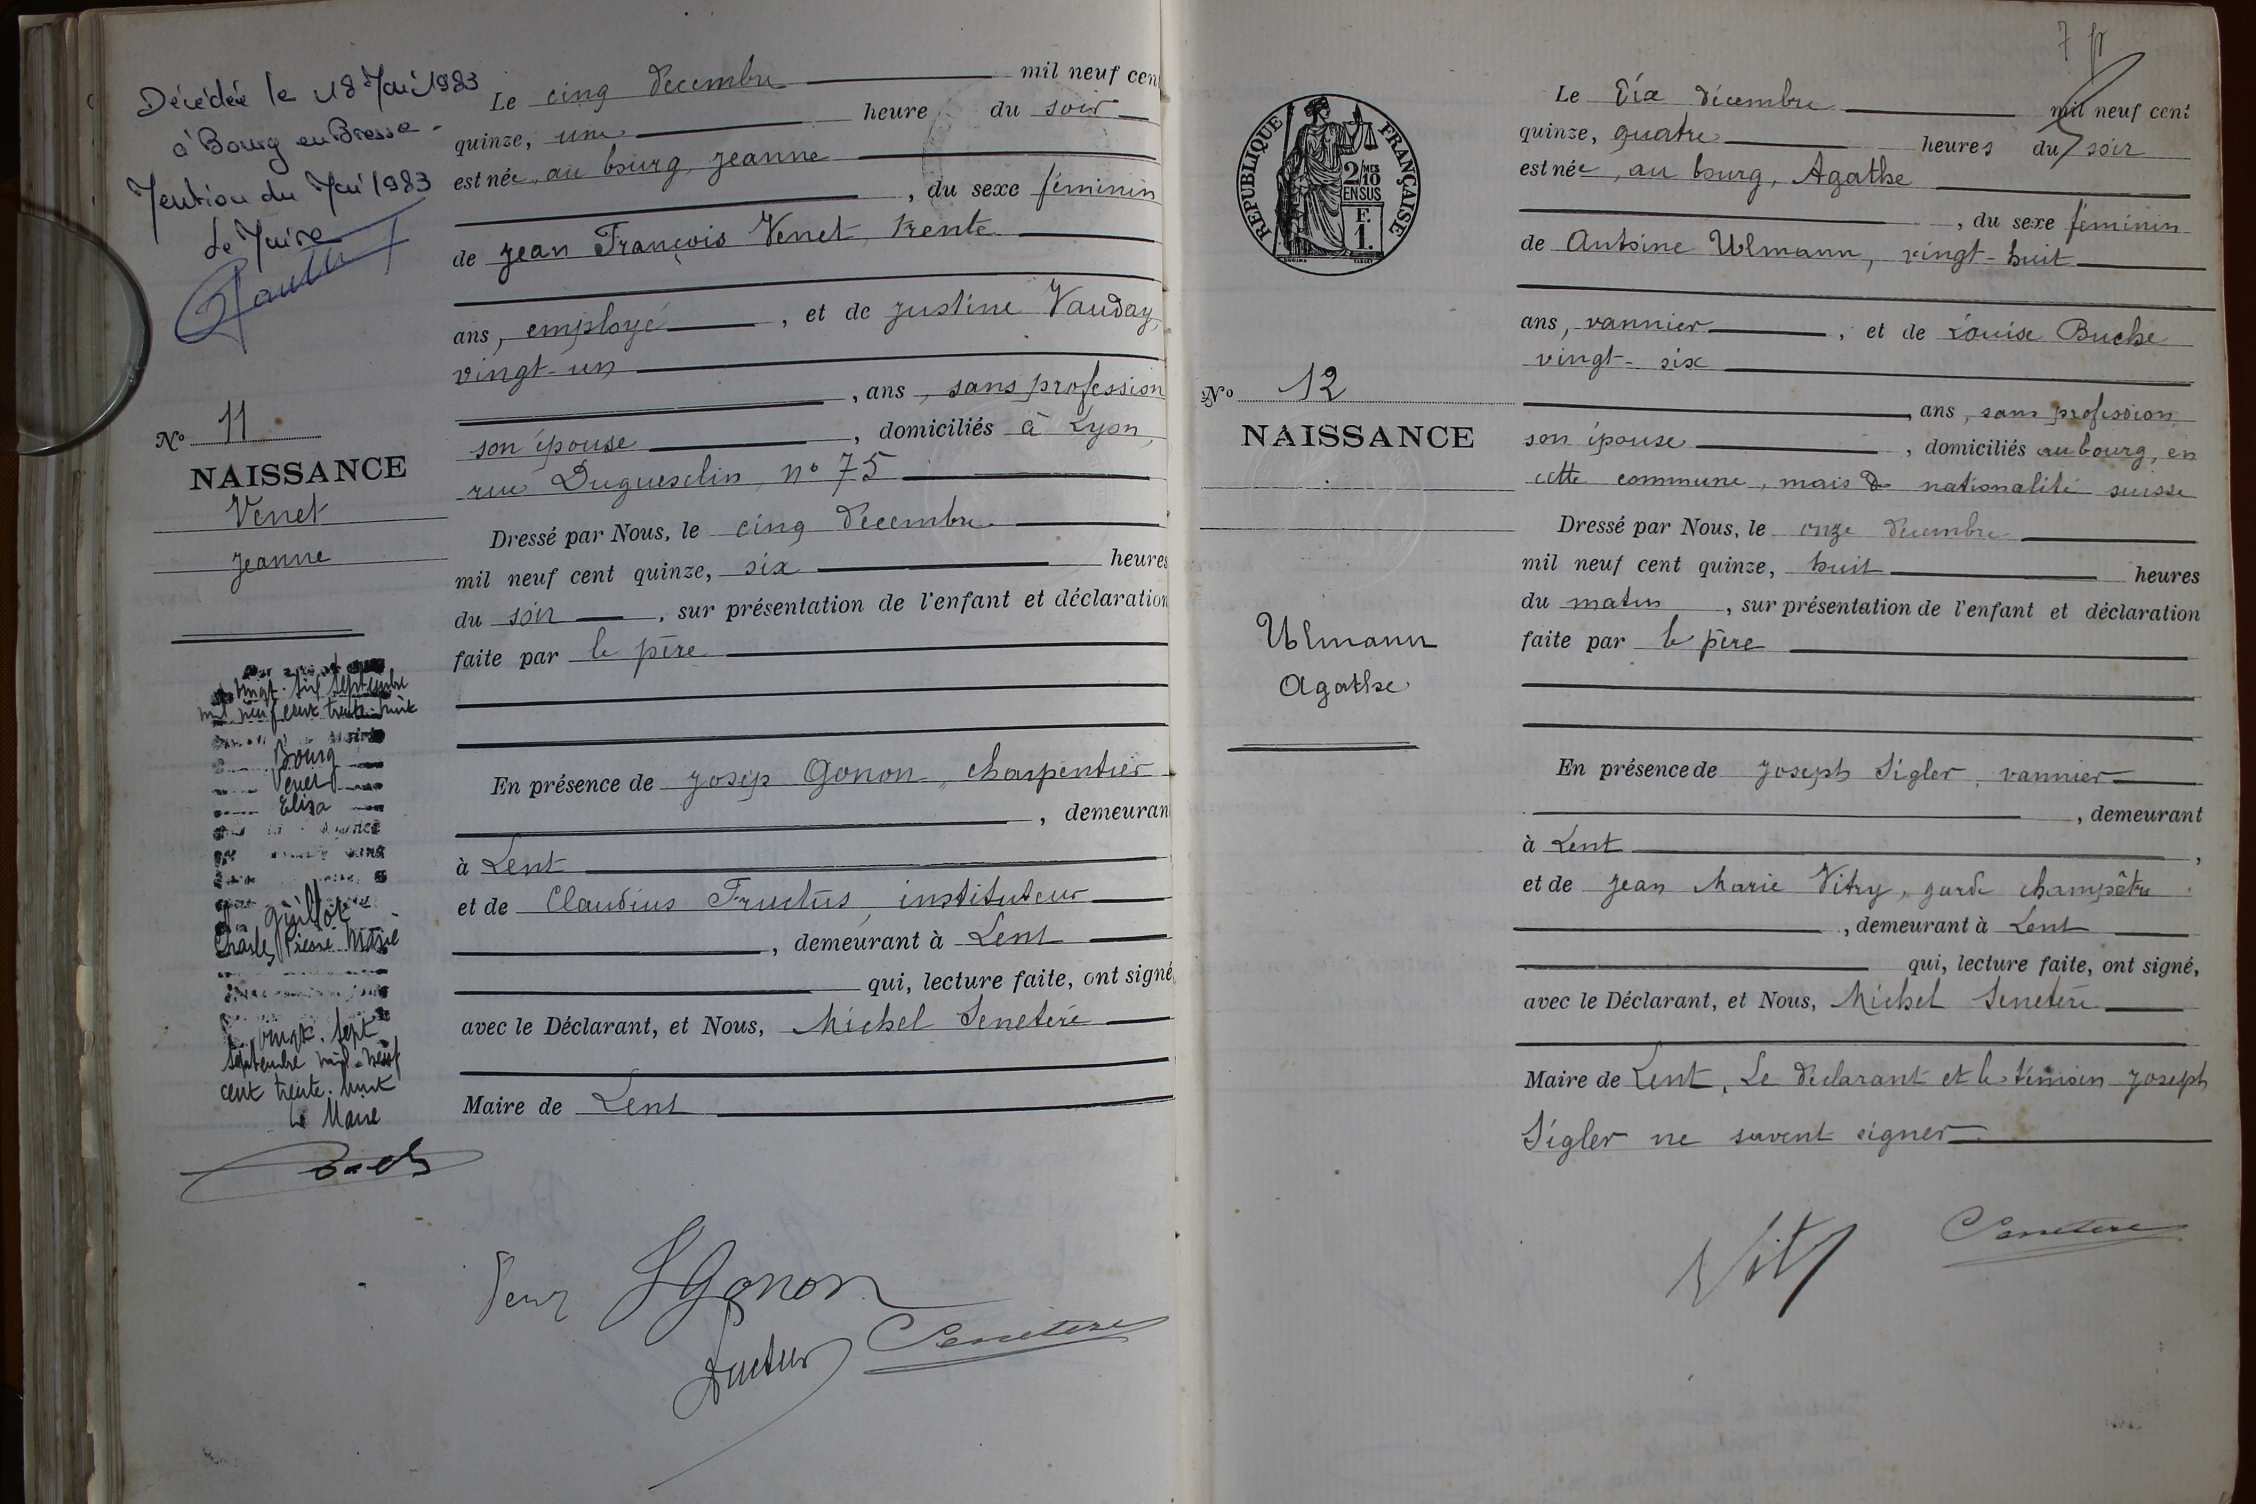 Décédée le 18 Mai 1983
à Bourg en Bresse
Mention du Mai 1983
Le Maire
No 11
NAISSANCE
Venet
Jeanne
vingt-six septembre
mil neuf cent trente-huit
Bourg
Venet
Eliza
Charles Pierre Marie
vingt-sept
septembre mil-neuf
cent trente-huit
Le Maire
Le cinq décembre mil neuf cent
quinze, une heure du soir
est née, au bourg, Jeanne
, du sexe féminin
de Jean François Venet, trente
ans, employé, et de Justine Vauday,
vingt-un
, ans, sans profession
son épouse, domiciliés à Lyon,
rue Duguesclin, n° 75
Dressé par Nous, le cinq décembre
mil neuf cent quinze, six heures
du soir, sur présentation de l'enfant et déclaration
faite par le père
En présence de Josep Gonon, charpentier
, demeuran
à Lent
et de Claudius Fructus, instituteur
, demeurant à Lent
qui, lecture faite, ont signé
avec le Déclarant, et Nous, Michel Senetère
Maire de Lent
JGonon
Fructus
Senetere
7
RÉPUBLIQUE FRANÇAISE
2/10 MES
EN SUS
F.
1.
No 12
NAISSANCE
Ulmann
Agathe
Le Dix décembre mil neuf cent
quinze, quatre heures du soir
est née, au bourg, Agathe
, du sexe féminin
de Antoine Ulmann, vingt-huit
ans, vannier, et de Louise Buche
vingt-six
ans, sans profession,
son épouse, domiciliés au bourg, en
cette commune, mais de nationalité suisse
Dressé par Nous, le onze décembre
mil neuf cent quinze, huit heures
du matin, sur présentation de l'enfant et déclaration
faite par le père
En présence de Joseph Sigler, vannier
, demeurant
à Lent,
et de Jean Marie Vitry, garde champêtre
, demeurant à Lent
qui, lecture faite, ont signé,
avec le Déclarant, et Nous, Michel Senetère
Maire de Lent, Le déclarant et le témoin Joseph
Sigler ne savent signer
Vitry
Senetere